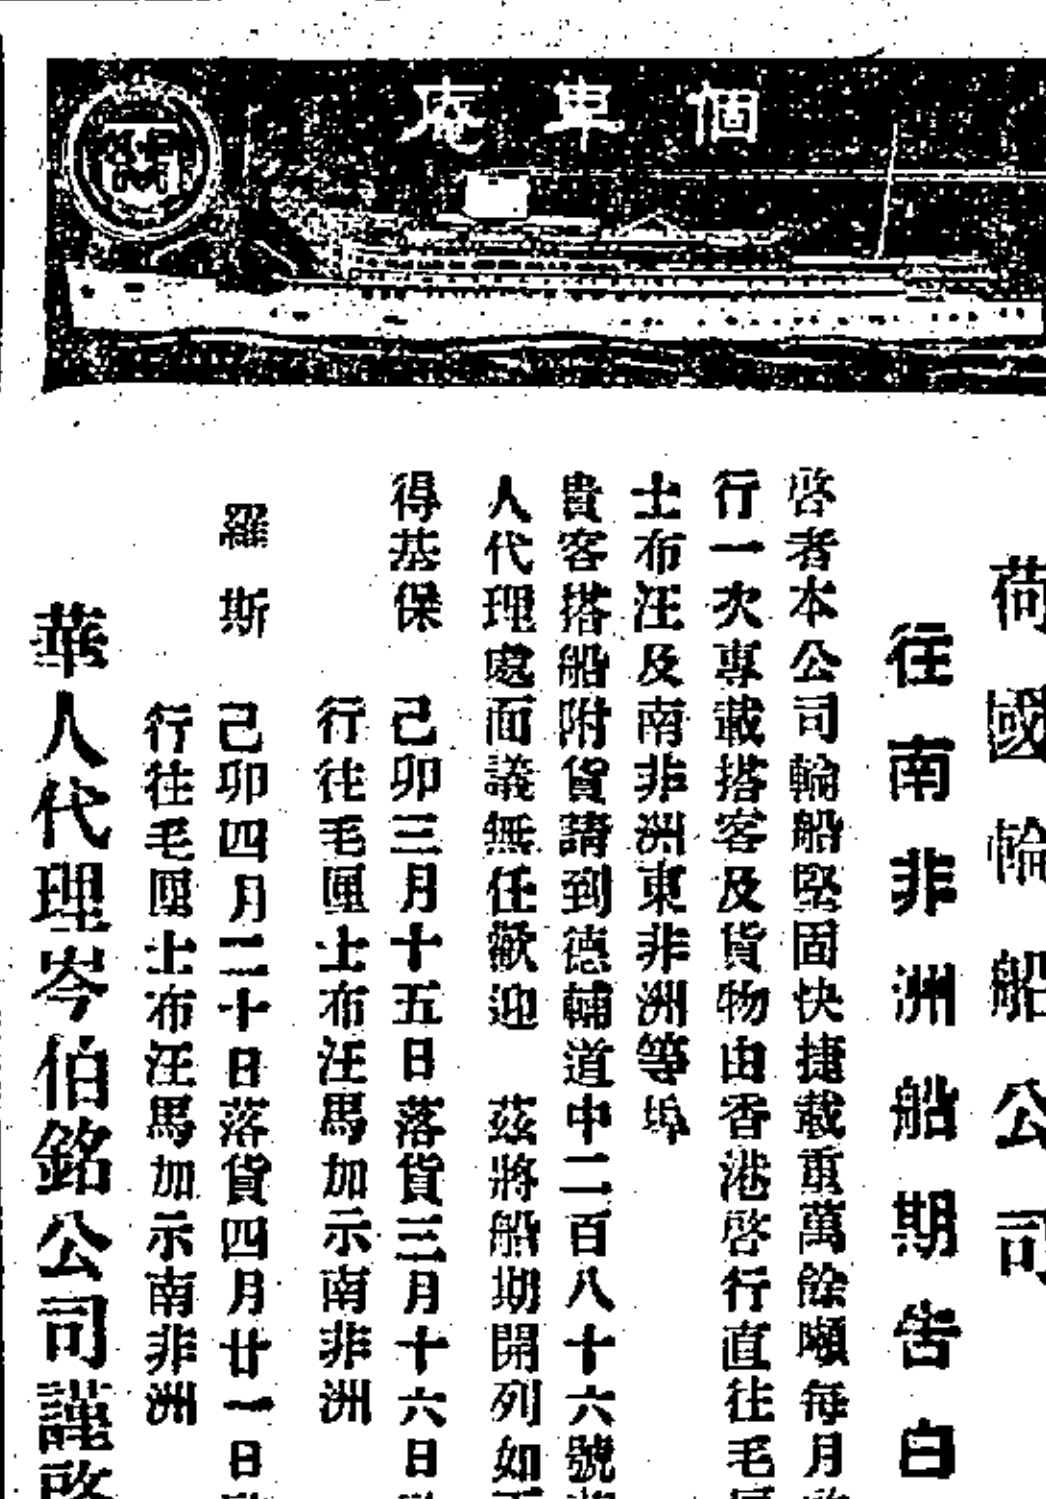 個卑庵
荷國輪船公司
往南非洲船期告白
啓者本公司輪船堅固快捷載重萬餘噸每月
行一次專載搭客及貨物由香港啓行直往毛
士布汪及南非洲東非洲等埠
貴客搭船附貨請到德輔道中二百八十六號
人代理處面議無任歡迎　茲將船期開列如
得基保　己卯三月十五日落貨三月十六日
行往毛匣士布汪馬加示南非洲
羅斯　己卯四月二十日落貨四月廿一日
行往毛匣士布汪馬加示南非洲
華人代理岑伯銘公司謹啓